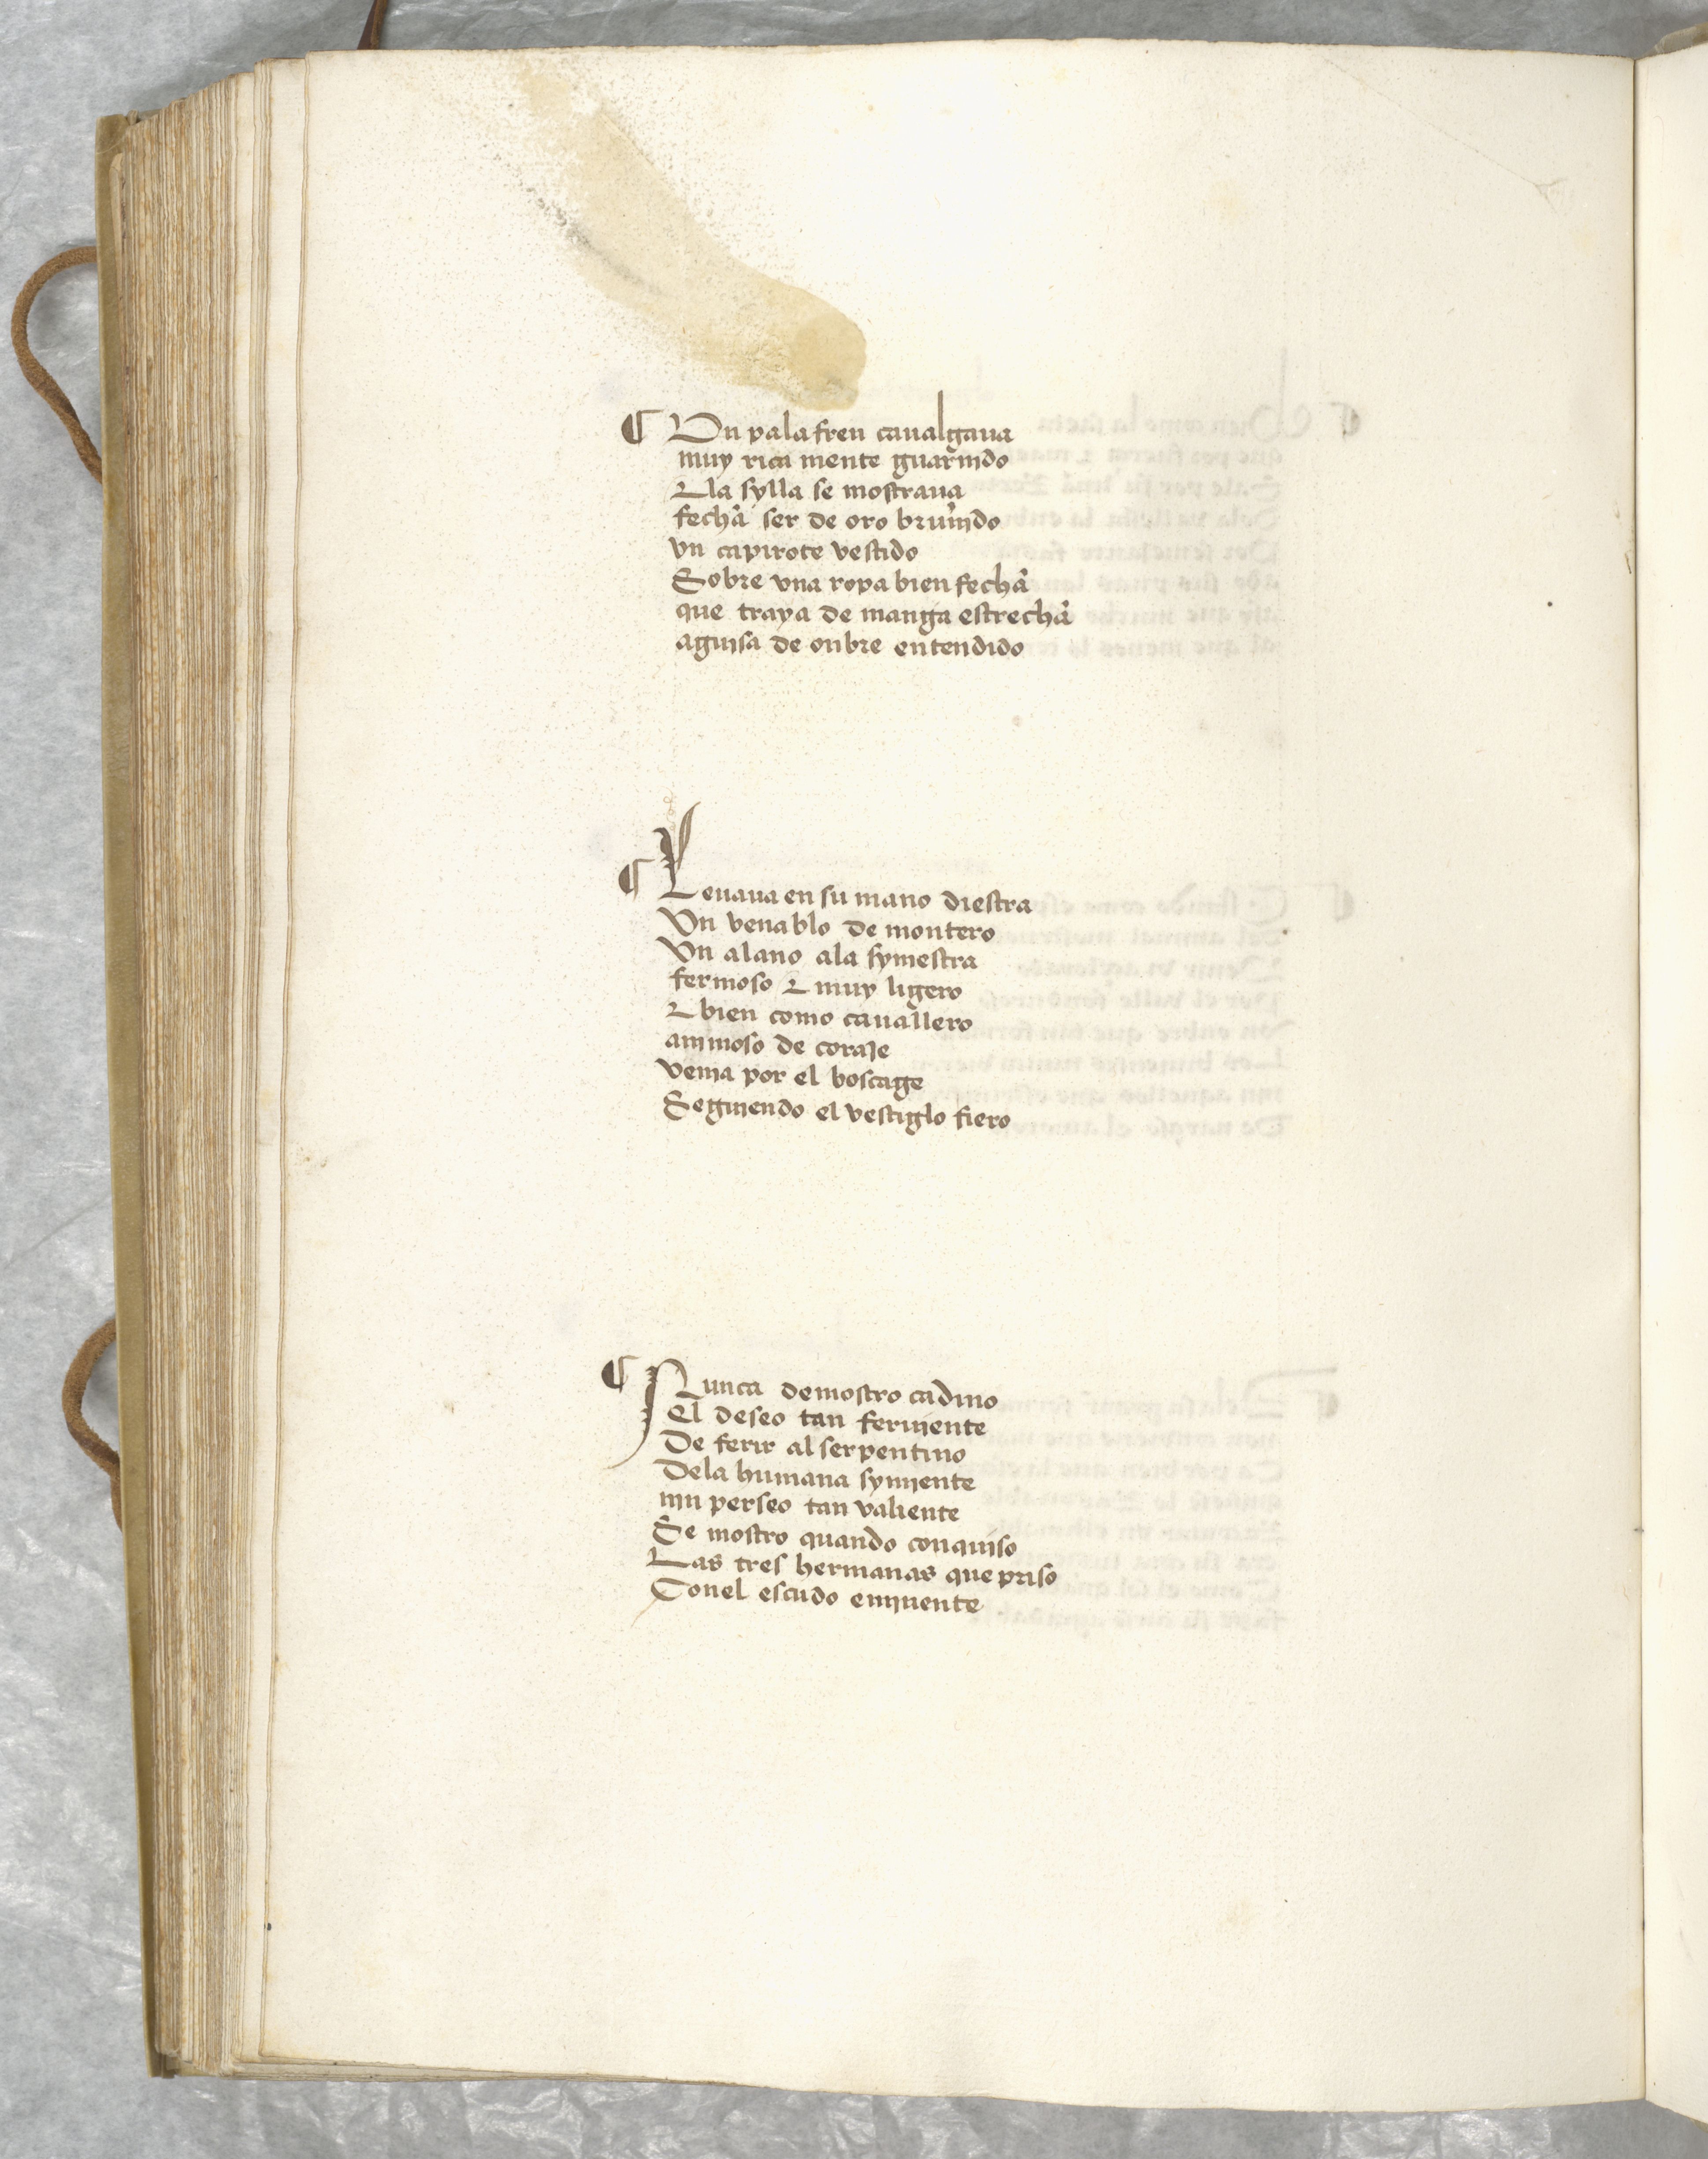 ¶ Un palafren caualgaua
muy rica mente guarnido
⁊ la sylla se mostraua
fecha ser de oro bruñido
vn capirote vestido
Sobre vna ropa bien fecha
que traya de manga estrecha
aguisa de onbre entendido
¶ Leuaua en su mano diestra
Vn venablo de montero
Vn alano ala syniestra
fermoso ⁊ muy ligero
⁊ bien como cauallero
animoso de coraje
venia por el boscage
Seguiendo el vestiglo fiero
¶ Nunca demostro cadino
el deseo tan feruiente
De ferir al serpentino
Dela humana symiente
nin perseo tan valiente
Se mostro quando conquiso
Las tres hermanas que priso
Conel escudo eminente